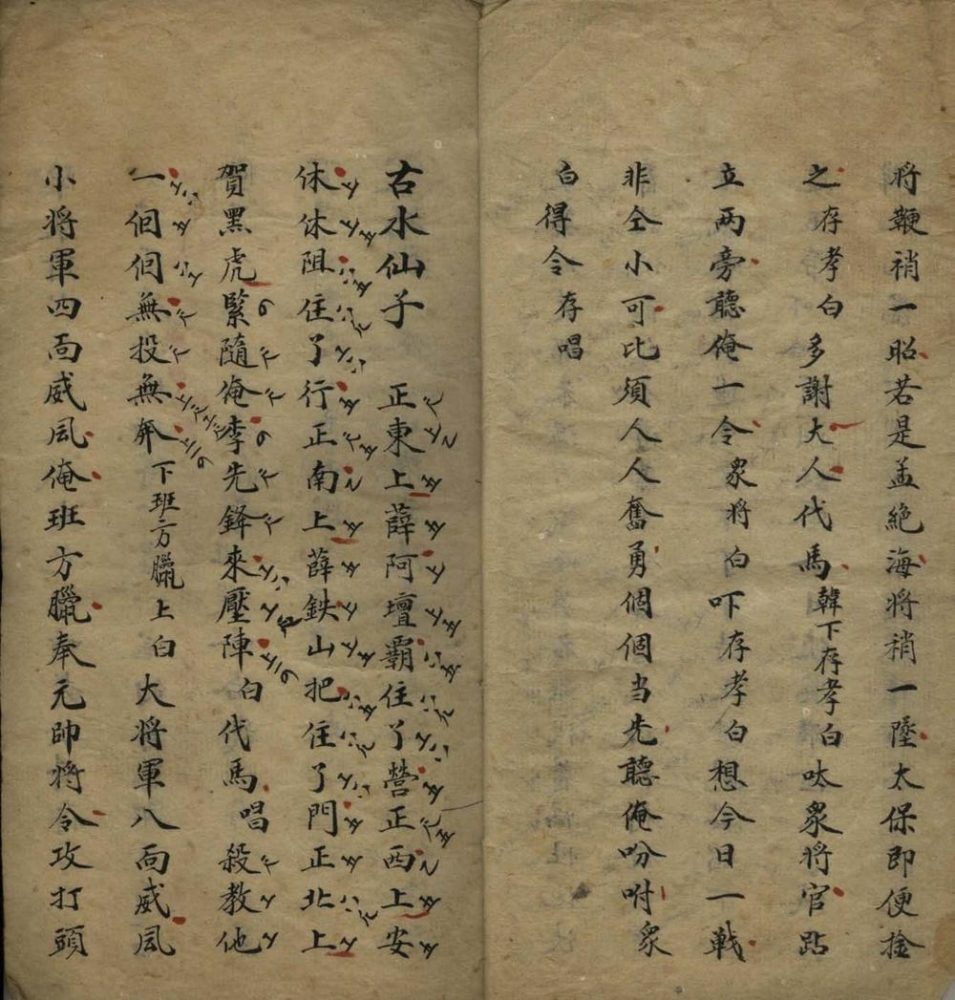 将鞭稍一昭若是孟絶海将稍一墜太保即便捨
之存孝白多謝大人代馬韓下存孝白呔衆将官跕
立两旁聽俺一令衆将白吓存孝白想今日一戦
非仝小可比須人人奮勇個個当先聽俺吩咐衆
白得令存唱
古水仙子 正東上薛阿壇霸住了營正西上安
休休阻住了行正南上薛鉄山把住了門正北上
賀黑虎緊隨俺李先鋒來壓陣白代馬唱殺教他
一個個無投無奔下班方臘上白大将軍八面威風
小将軍四面威風俺班方臘奉元帥将令攻打頭